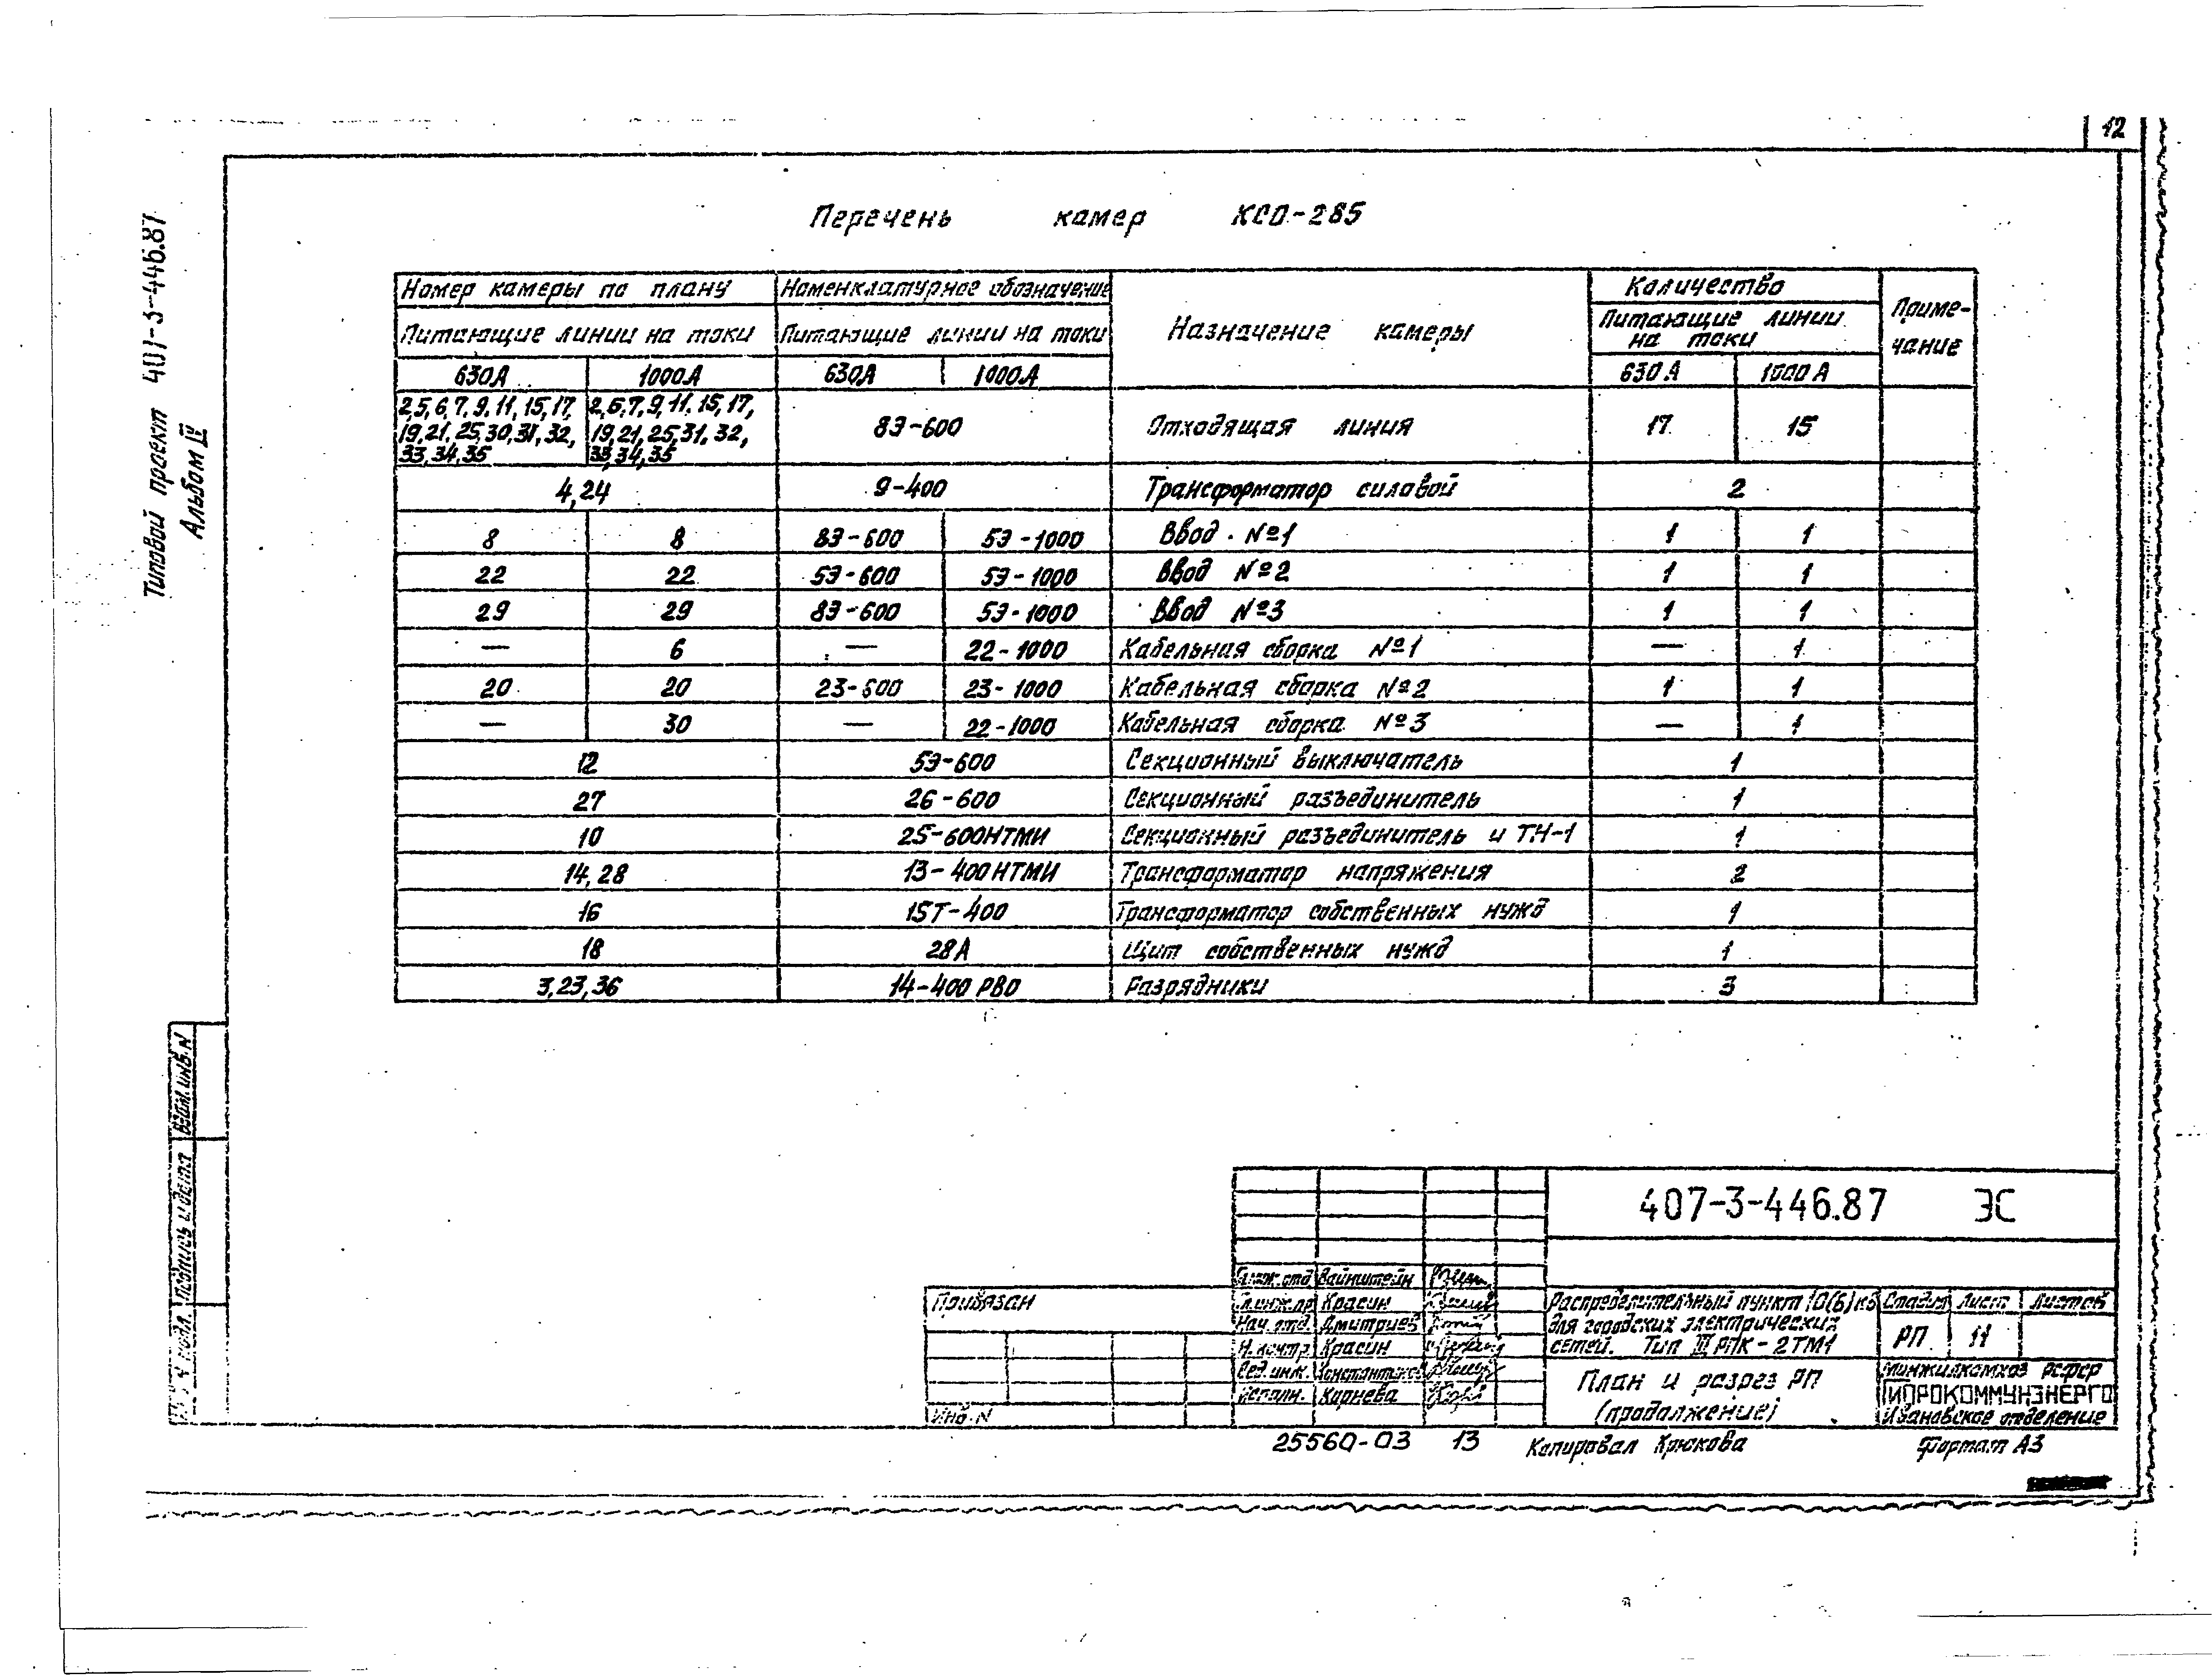 12
Типовой проект 407-3-446.87
Альбом IV
Перечень камер КСО-285
Номер камеры по плану
Номенклатурное обозначение
Назначение камеры
Количество
Приме-
чание
Питающие линии на токи
Питающие линии на токи
Питающие линии
на токи
630А 1000А 630А 1000А 630А 1000А
2,5,6,7,9,11,15,17, 2,5,7,9,11,15,17,
19,21,25,30,31,32, 19,21,25,31,32,
33,34,35 33,34,35
8Э-600 Отходящая линия 17 15
4,24 9-400 Трансформатор силовой 2
8 8 8Э-600 5Э-1000 Ввод №1 1 1
22 22 5Э-600 5Э-1000 Ввод №2 1 1
29 29 8Э-600 5Э-1000 Ввод №3 1 1
— 6 — 22-1000 Кабельная сборка №1 — 1
20 20 23-600 23-1000 Кабельная сборка №2 1 1
— 30 — 22-1000 Кабельная сборка №3 — 1
12 5Э-600 Секционный выключатель 1
27 26-600 Секционный разъединитель 1
10 25-600НТМИ Секционный разъединитель и ТН-1 1
14,28 13-400НТМИ Трансформатор напряжения 2
16 15Т-400 Трансформатор собственных нужд 1
18 28А Щит собственных нужд 1
3,23,36 14-400 РВО Разрядники 3
Взам.инв.N
Подпись и дата
407-3-446.87 ЭС
Привязан
Инв.N
Вайнштейн
Гл.инж.пр Красин
Нач.отд. Дмитриев
Н.контр Красин
Вед.инж.
Исполн. Корнева
Распределительный пункт 10(6)кВ
для городских электрических
сетей. Тип III РПК-2ТМ1
Стадия Лист Листов
РП 11
План и разрез РП
(продолжение)
Минжилкомхоз РСФСР
ГИПРОКОММУНЭНЕРГО
Ивановское отделение
25560-03 13 Копировал Крюкова Формат А3